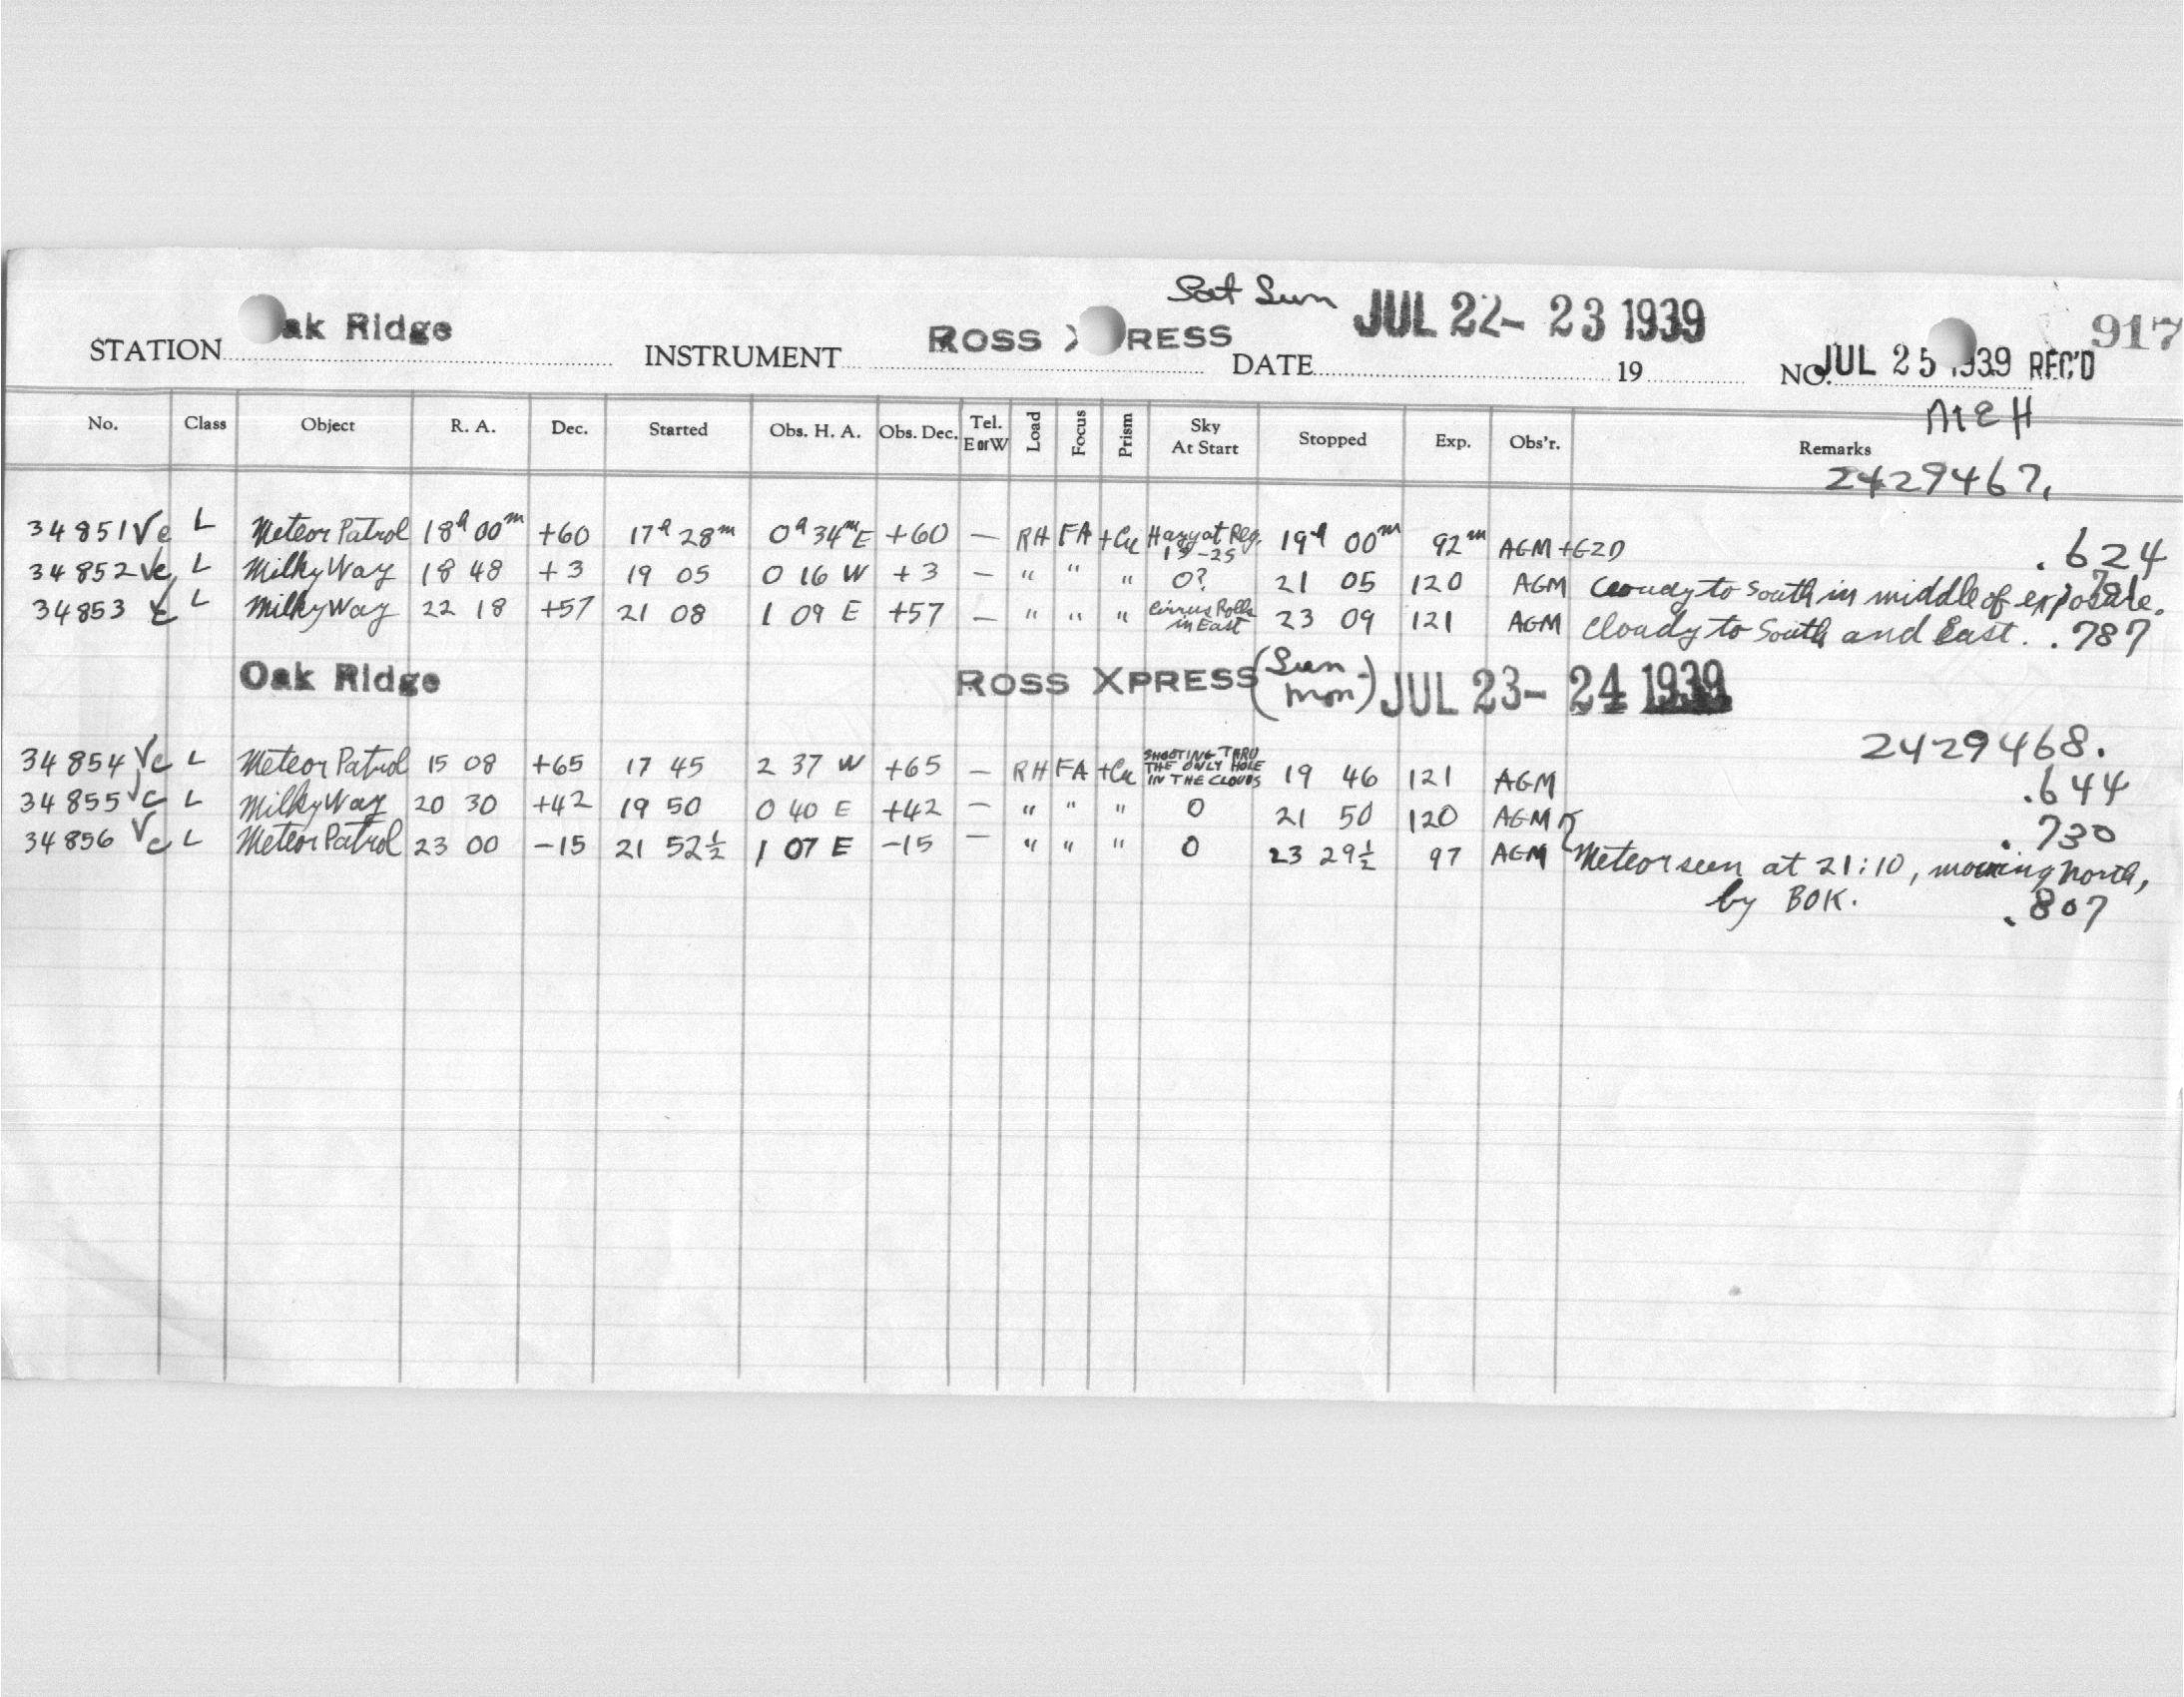 Sat Sun
STATION ak Ridge INSTRUMENT ROSS X RESS DATE JUL 22- 23 1939 19 NO. JUL 25 1939 REC'D 917
MEH
No. Class Object R. A. Dec. Started Obs. H. A. Obs. Dec. Tel. E or W Load Focus Prism Sky At Start Stopped Exp. Obs'r. Remarks
2429467.
34851 Vc L Meteor Patrol 18h 00m +60 17h 28m 0h 34m E +60 — RH FA +Cu Hazy at 19h 00m 92m AGM + .624
34852 Vc L Milky Way 18 48 +3 19 05 0 16 W +3 — " " " 0? 21 05 120 AGM Cloudy to South in middle of exposure.
34853 L Milky Way 22 18 +57 21 08 1 09 E +57 — " " " Cirrus Rolls in East 23 09 121 AGM Cloudy to South and East. .787
Oak Ridge ROSS XPRESS (Sun - Mon) JUL 23- 24 1939
2429468.
34854 Vc L Meteor Patrol 15 08 +65 17 45 2 37 W +65 — RH FA +Cu SHOOTING THRU THE ONLY HOLE IN THE CLOUDS 19 46 121 AGM .644
34855 Vc L Milky Way 20 30 +42 19 50 0 40 E +42 — " " " 0 21 50 120 AGM .730
34856 Vc L Meteor Patrol 23 00 -15 21 52½ 1 07 E -15 — " " " 0 23 29½ 97 AGM Meteor seen at 21:10, moving North,
by BOK. .807